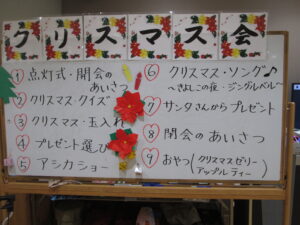 クリスマス会
① 点灯式・開会のあいさつ
② クリスマス・クイズ
③ クリスマス・玉入れ
④ プレゼント選び
⑤ アシカショー
⑥ クリスマス・ソング♪
～きよしこの夜・ジングルベル～
⑦ サンタさんからプレゼント
⑧ 閉会のあいさつ
⑨ おやつ(クリスマスゼリー
アップルティー)